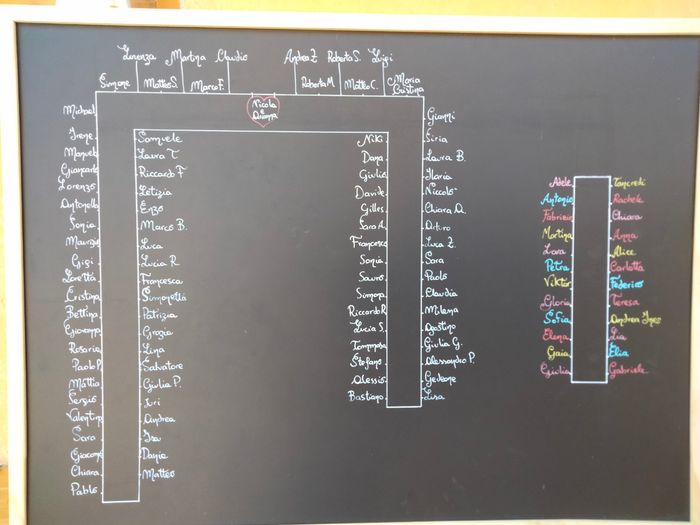 Lorenza
Martina
Claudio
Andrea Z.
Roberta S.
Luigi
Simone
Matteo S.
Marco F.
Roberta M
Matteo C.
Maria
Cristina
Nicola
e
Michael
Irene
Manuel
Giancarlo
Lorenzo
Antonella
Sonia
Maurizio
Gigi
Loretta
Cristina
Bettina
Giovanna
Rosaria
Paolo P.
Mattia
Sergio
Valentina
Sara
Giacomo
Chiara
Pablo
Samuele
Laura T.
Riccardo F
Letizia
Enzo
Marco B.
Luca
Lucia R.
Francesca
Simonetta
Patrizia
Grazia
Lina
Salvatore
Giulia P.
Iuri
Andrea
Isa
Dania
Matteo
Niki
Dana
Giulio
Davide
Gilles
Sara A.
Francesco
Sonia
Sauro
Simona
Riccardo R
Lucia S.
Tommaso
Stefano
Alessio
Bastiano
Gianni
Siria
Laura B.
Ilaria
Niccolò
Chiara D.
Arturo
Luca Z.
Sara
Paolo
Claudia
Milena
Agostino
Giulia G.
Alessandro P.
Gedeone
Lisa
Adele
Antonio
Fabrizio
Martina
Lara
Petra
Viktor
Gloria
Sofia
Elena
Gaia
Giulia
Tancredi
Rachele
Chiara
Anna
Alice
Carlotta
Federico
Teresa
Andrea Ines
Lia
Elia
Gabriele